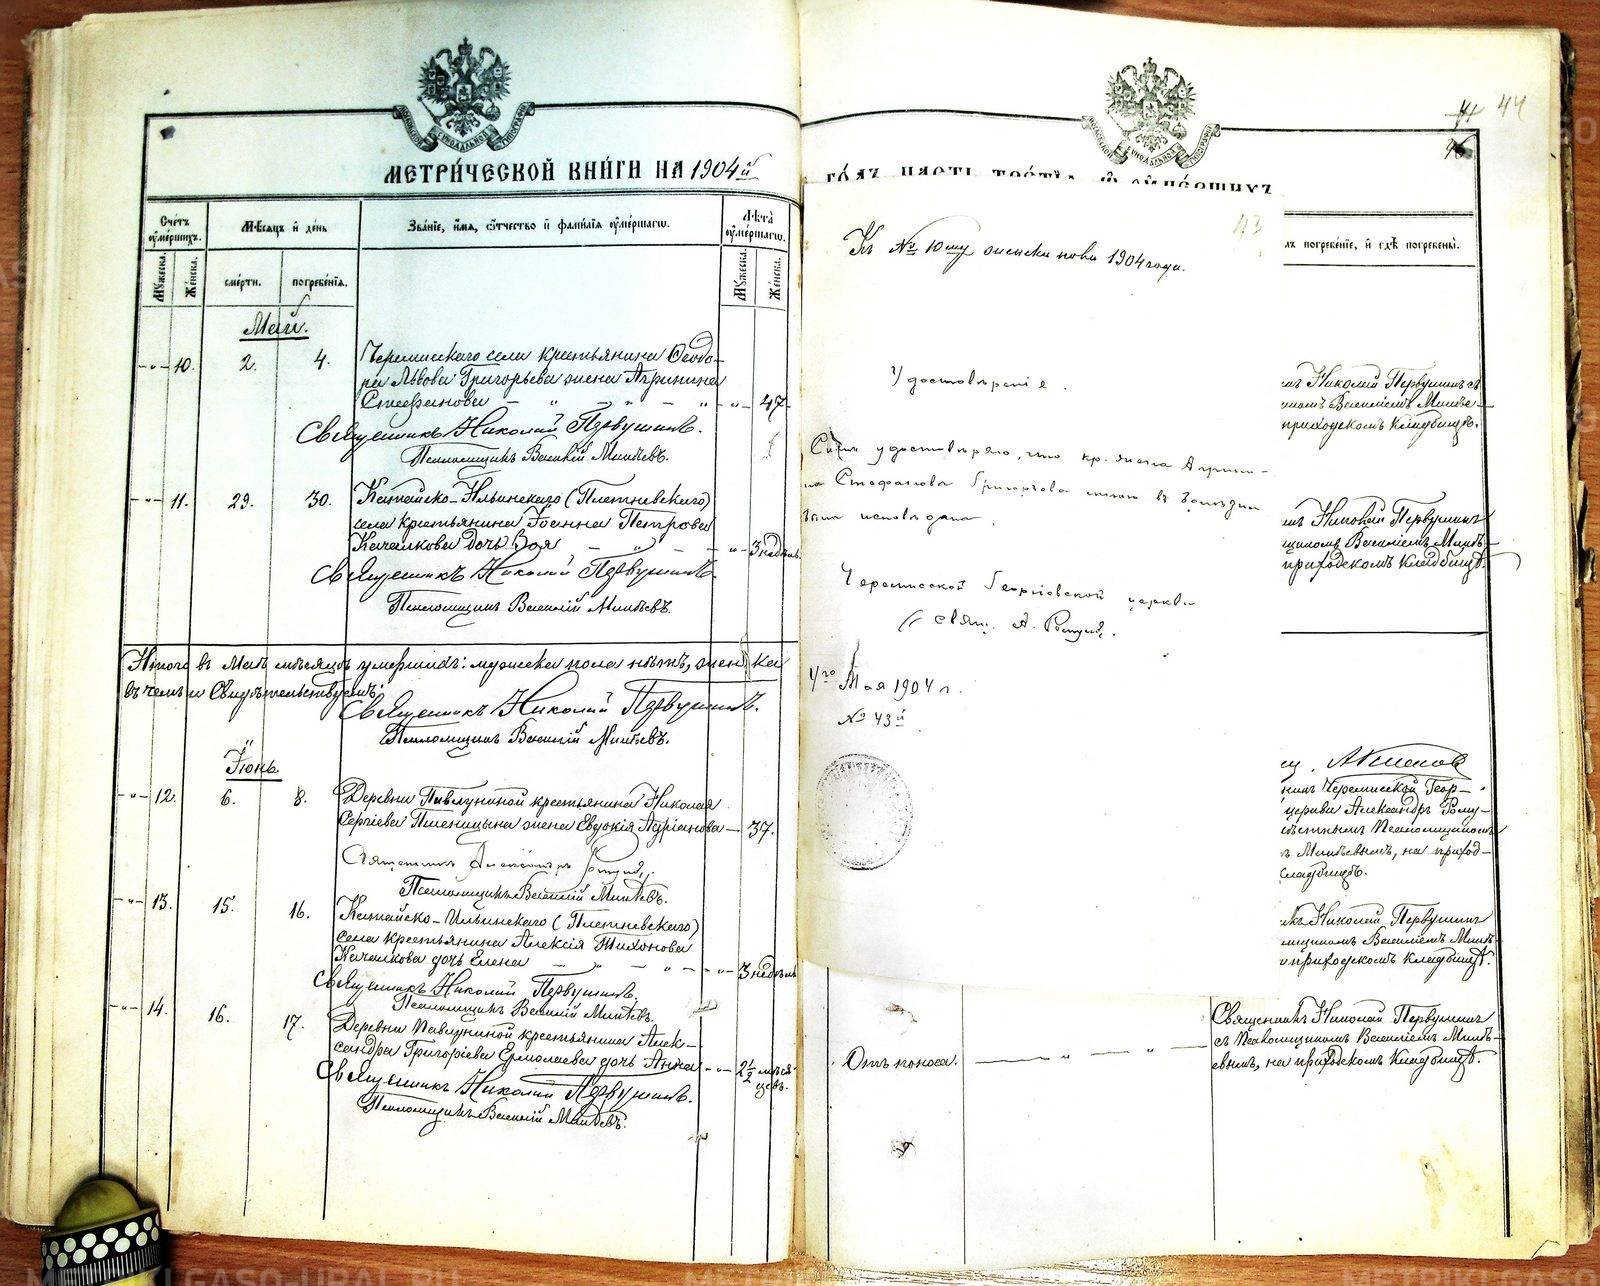 МЕТРИ́ЧЕСКОЙ КНИ́ГИ НА 1904й
Сче́тъ ᲂу҆ме́ршихъ.
Мѣ́сяцъ и҆ де́нь
Зва́нїе, и҆́мя, ѻ҆́тчество и҆ фами́лїя ᲂу҆ме́ршагѡ.
Лѣ́та ᲂу҆ме́ршагѡ.
Мꙋ́жеска.
Же́нска.
сме́рти.
погребе́нїя.
Мꙋ́жеска.
Же́нска.
Май.
10. 2. 4. Черемисскаго села крестьянина Ѳеодо-
ра Львова Григорьева жена Агрипина
Стефанова — „ — „ — „ 47
Священникъ Николай Первушинъ.
Псаломщикъ Василій Минѣевъ.
11. 29. 30. Катайско-Ильинскаго (Плетневскаго)
села крестьянина Іоанна Петрова
Качалкова дочь Зоя 3 недѣль
Священникъ Николай Первушинъ.
Псаломщикъ Василій Минѣевъ.
Итого въ Маѣ мѣсяцѣ умершихъ: мужеска пола нѣтъ, жен ка
въ чемъ и Свидѣтельствуемъ:
Священникъ Николай Первушинъ.
Псаломщикъ Василій Минѣевъ.
Іюнь
12. 6. 8. Деревни Павлуниной крестьянина Николая
Сергіева Пшеницына жена Евдокія Адріанова — 37.
Священникъ Александръ
Псаломщикъ Василій Минѣевъ.
13. 15. 16. Катайско-Ильинскаго (Плетневскаго)
села крестьянина Алексія Тихонова
Качалкова дочь Елена 3 недѣль
Священникъ Николай Первушинъ.
Псаломщикъ Василій Минѣевъ.
14. 16. 17. Деревни Павлуниной крестьянина Алек-
сандра Григоріева Ермолаева дочь Анна 2½ мѣся-
цевъ.
Священникъ Николай Первушинъ.
Псаломщикъ Василій Минѣевъ.
44
43
Къ № 10му записи 1904 года.
Удостовѣреніе.
Симъ удостовѣряю, что кр. жена Агрипи-
на Стефанова Григорьева мною въ
была исповѣдана.
Черемисской Георгіевской церкви
свящ. А.
4го Мая 1904 г.
№ 43й
ъ погребе́нїе, и҆ гдѣ̀ погребены̀.
Николай Первушинъ съ
Василіемъ Минѣе-
приходскомъ кладбищѣ.
Николай Первушинъ
Василіемъ Минѣ-
приходскомъ кладбищѣ.
Черемисской Геор-
церкви Александръ
Псаломщикомъ
Минѣевымъ, на приход-
кладбищѣ.
Николай Первушинъ
Василіемъ Минѣ-
приходскомъ кладбищѣ.
Отъ поноса. — „ — „ —
Священникъ Николай Первушинъ
съ Псаломщикомъ Василіемъ Минѣ-
евымъ, на приходскомъ кладбищѣ.